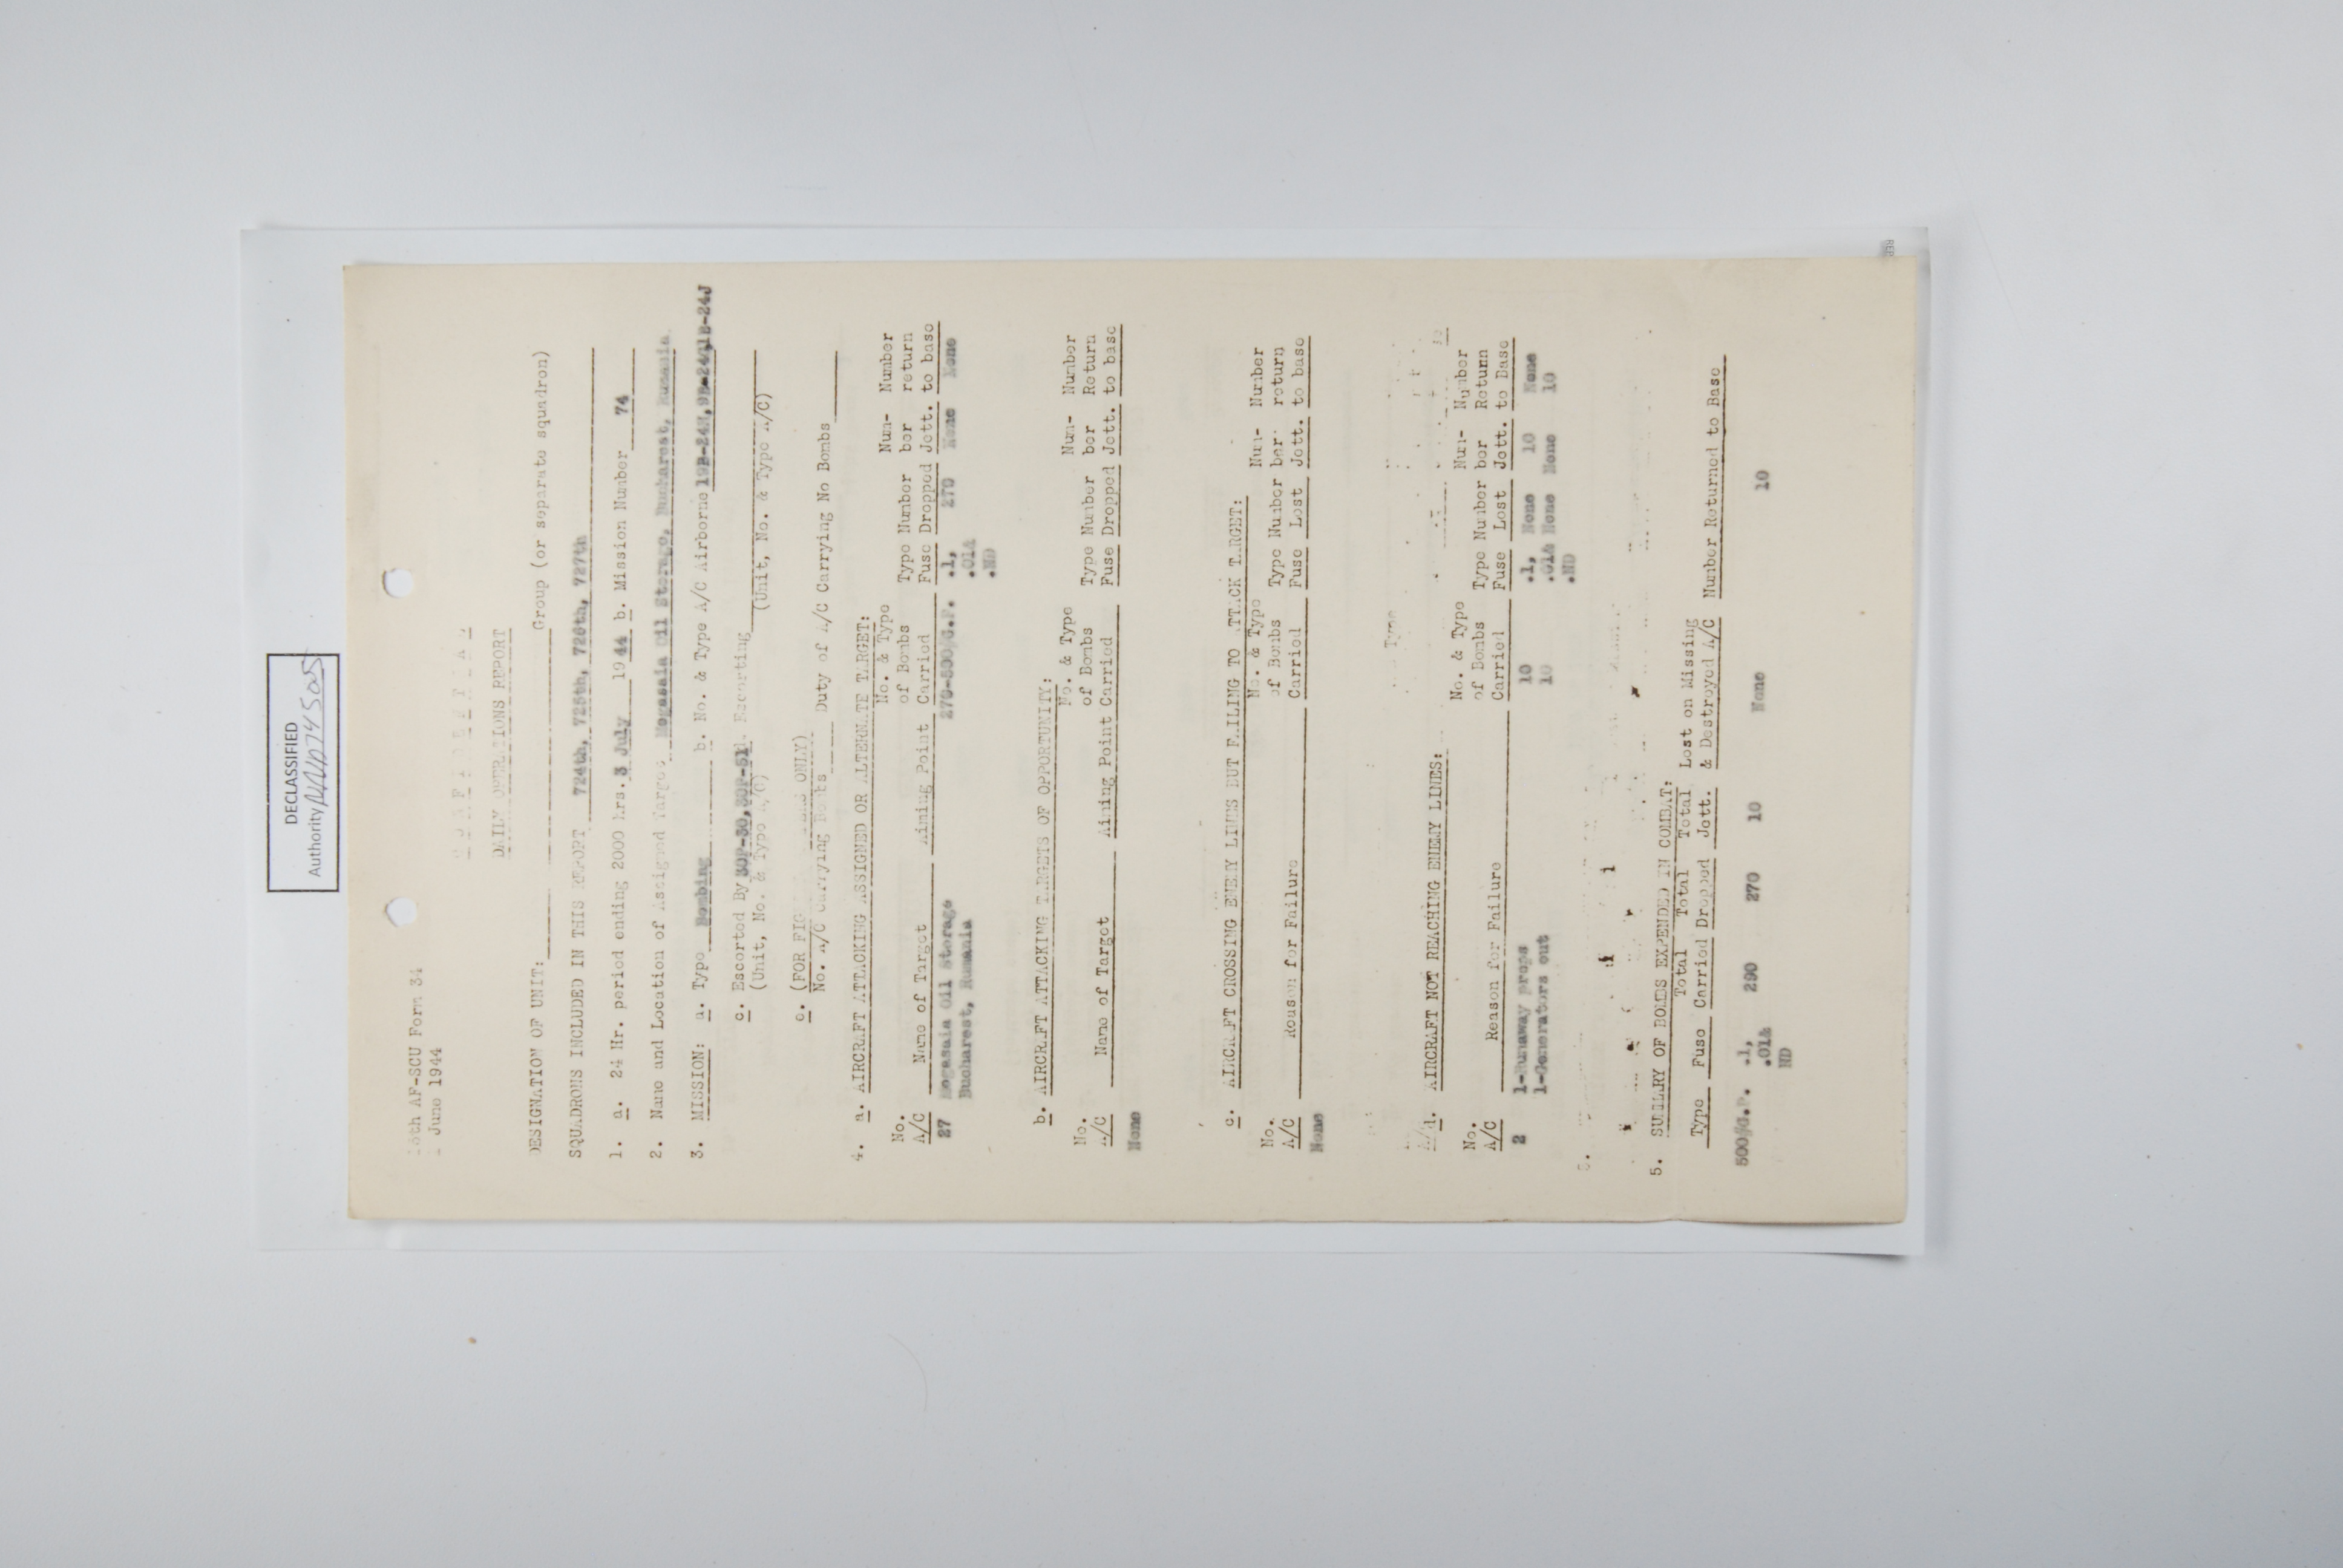 DECLASSIFIED
Authority NND745005
15th AF-SCU Form 34
1 June 1944
CONFIDENTIAL
DAILY OPERATIONS REPORT
DESIGNATION OF UNIT: Group (or separate squadron)
SQUADRONS INCLUDED IN THIS REPORT 724th, 725th, 726th, 727th
1. a. 24 Hr. period ending 2000 hrs. 3 July 1944 b. Mission Number 74
2. Name and Location of Assigned Target Mogasaia Oil Storage, Bucharest, Rumania
3. MISSION: a. Type Bombing b. No. & Type A/C Airborne 19B-24H, 9B-24G, 1B-24J
c. Escorted By 30P-38, 30P-51 d. Escorting
(Unit, No. & Type A/C) (Unit, No. & Type A/C)
e. (FOR FIG ONLY)
No. A/C Carrying Bombs Duty of A/C Carrying No Bombs
4. a. AIRCRAFT ATTACKING ASSIGNED OR ALTERNATE TARGET:
No. & Type Num- Number
No. of Bombs Type Number ber return
A/C Name of Target Aiming Point Carried Fuse Dropped Jett. to base
27 Mogasaia Oil Storage 270-500#G.P. .1, 270 None None
Bucharest, Rumania .01&
.ND
b. AIRCRAFT ATTACKING TARGETS OF OPPORTUNITY:
No. & Type Num- Number
No. of Bombs Type Number ber Return
A/C Name of Target Aiming Point Carried Fuse Dropped Jett. to base
None
c. AIRCRAFT CROSSING ENEMY LINES BUT FAILING TO ATTACK TARGET:
No. & Type Num- Number
No. of Bombs Type Number ber return
A/C Reason for Failure Carried Fuse Lost Jett. to base
None
Type
d. AIRCRAFT NOT REACHING ENEMY LINES:
No. & Type Num- Number
No. of Bombs Type Number ber Return
A/C Reason for Failure Carried Fuse Lost Jett. to Base
2 1-Runaway props 10 .1, None 10 None
1-Generators out 10 .01& None None 10
.ND
5. SUMMARY OF BOMBS EXPENDED IN COMBAT:
Total Total Total Lost on Missing
Type Fuse Carried Dropped Jett. & Destroyed A/C Number Returned to Base
500#G.P. .1, 290 270 10 None 10
.01&
ND